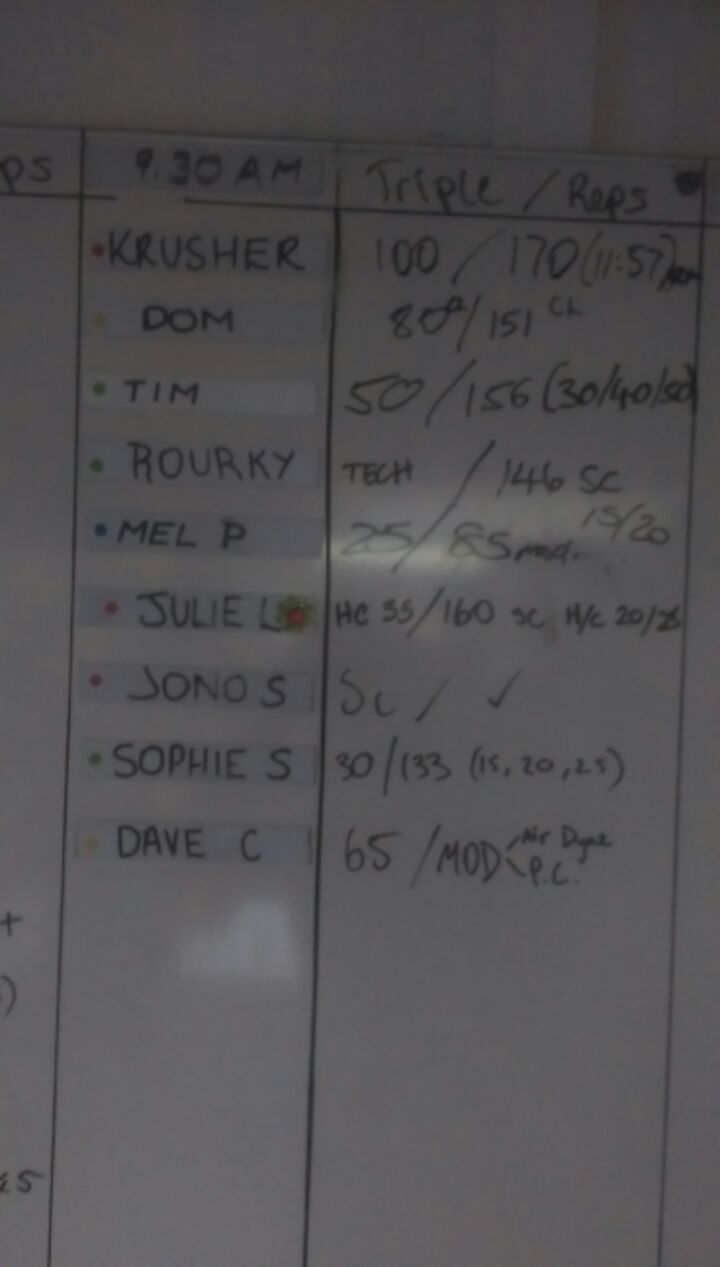 ps 9.30 AM Triple / Reps
KRUSHER 100 / 170 (11:57)
DOM /151
TIM 50/156 (30/40/50)
ROURKY TECH / 146 SC
MEL P 25/85 mod. 15/20
JULIE L HC 35/160 SC H/C 20/25
JONO S SC / ✓
SOPHIE S 30/133 (15, 20, 25)
DAVE C 65 /MOD Air Dyne
P.C.
+
)